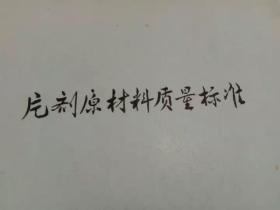 片剂原材料质量标准